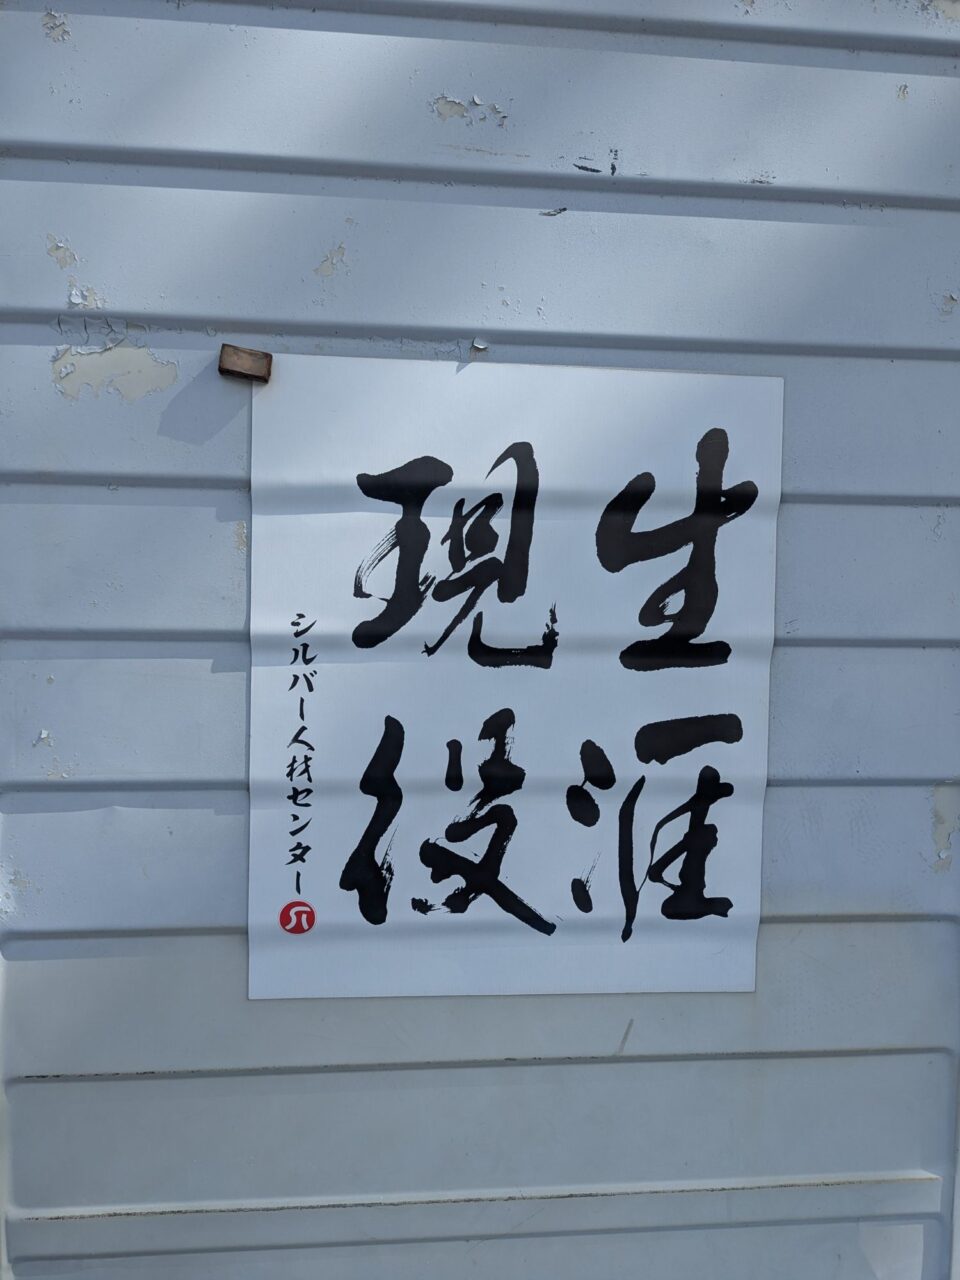 生涯
現役
シルバー人材センター